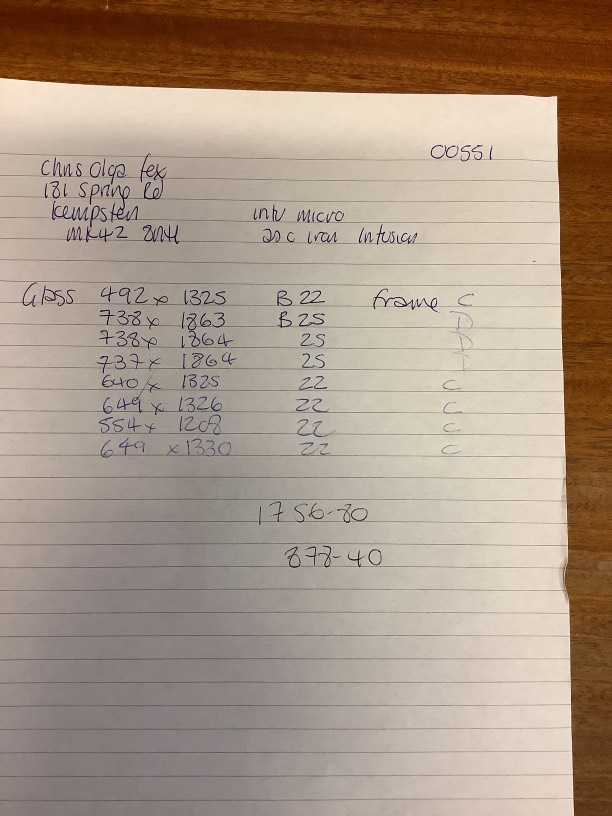 00551
Chris Olga fex
181 Spring Rd
Kempsten
MK42 8NH
intu micro
20 c iron Infusion
Glass 492 x 1325 B 22 frame C
738 x 1863 B 25 D
738 x 1864 25 D
737 x 1864 25
640 x 1325 22 C
649 x 1326 22 C
554 x 1208 22 C
649 x 1330 22 C
1756-80
878-40